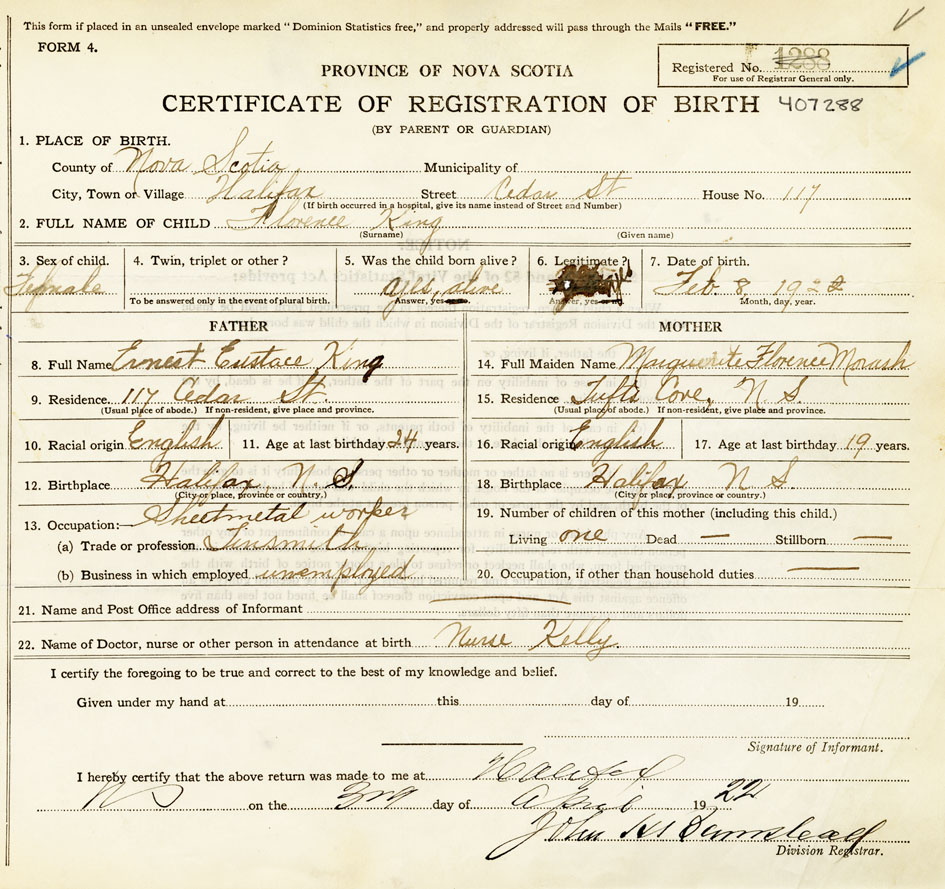 This form if placed in an unsealed envelope marked "Dominion Statistics free," and properly addressed will pass through the Mails "FREE."
FORM 4.
Registered No. 1288
For use of Registrar General only.
PROVINCE OF NOVA SCOTIA
CERTIFICATE OF REGISTRATION OF BIRTH 407288
(BY PARENT OR GUARDIAN)
1. PLACE OF BIRTH.
County of Nova Scotia Municipality of
City, Town or Village Halifax Street Cedar St House No. 117
(If birth occurred in a hospital, give its name instead of Street and Number)
2. FULL NAME OF CHILD Florence King
(Surname) (Given name)
3. Sex of child. 4. Twin, triplet or other? 5. Was the child born alive? 6. Legitimate? 7. Date of birth.
Female yes, alive Feb. 8, 1922
To be answered only in the event of plural birth. Answer, yes or no. Answer, yes or no. Month, day, year.
FATHER MOTHER
8. Full Name Ernest Eustace King 14. Full Maiden Name Marguerite Florence Morash
9. Residence 117 Cedar St. 15. Residence Tufts Cove, N S
(Usual place of abode.) If non-resident, give place and province. (Usual place of abode.) If non-resident, give place and province.
10. Racial origin English 11. Age at last birthday 24 years. 16. Racial origin English 17. Age at last birthday 19 years.
12. Birthplace Halifax N. S. 18. Birthplace Halifax N S
(City or place, province or country.) (City or place, province or country.)
13. Occupation:— Sheetmetal worker 19. Number of children of this mother (including this child.)
(a) Trade or profession Tinsmith Living one Dead — Stillborn —
(b) Business in which employed unemployed 20. Occupation, if other than household duties —
21. Name and Post Office address of Informant
22. Name of Doctor, nurse or other person in attendance at birth Nurse Kelly.
I certify the foregoing to be true and correct to the best of my knowledge and belief.
Given under my hand at this day of 19
Signature of Informant.
I hereby certify that the above return was made to me at Halifax
NS on the 3rd day of April 1922
John H
Division Registrar.